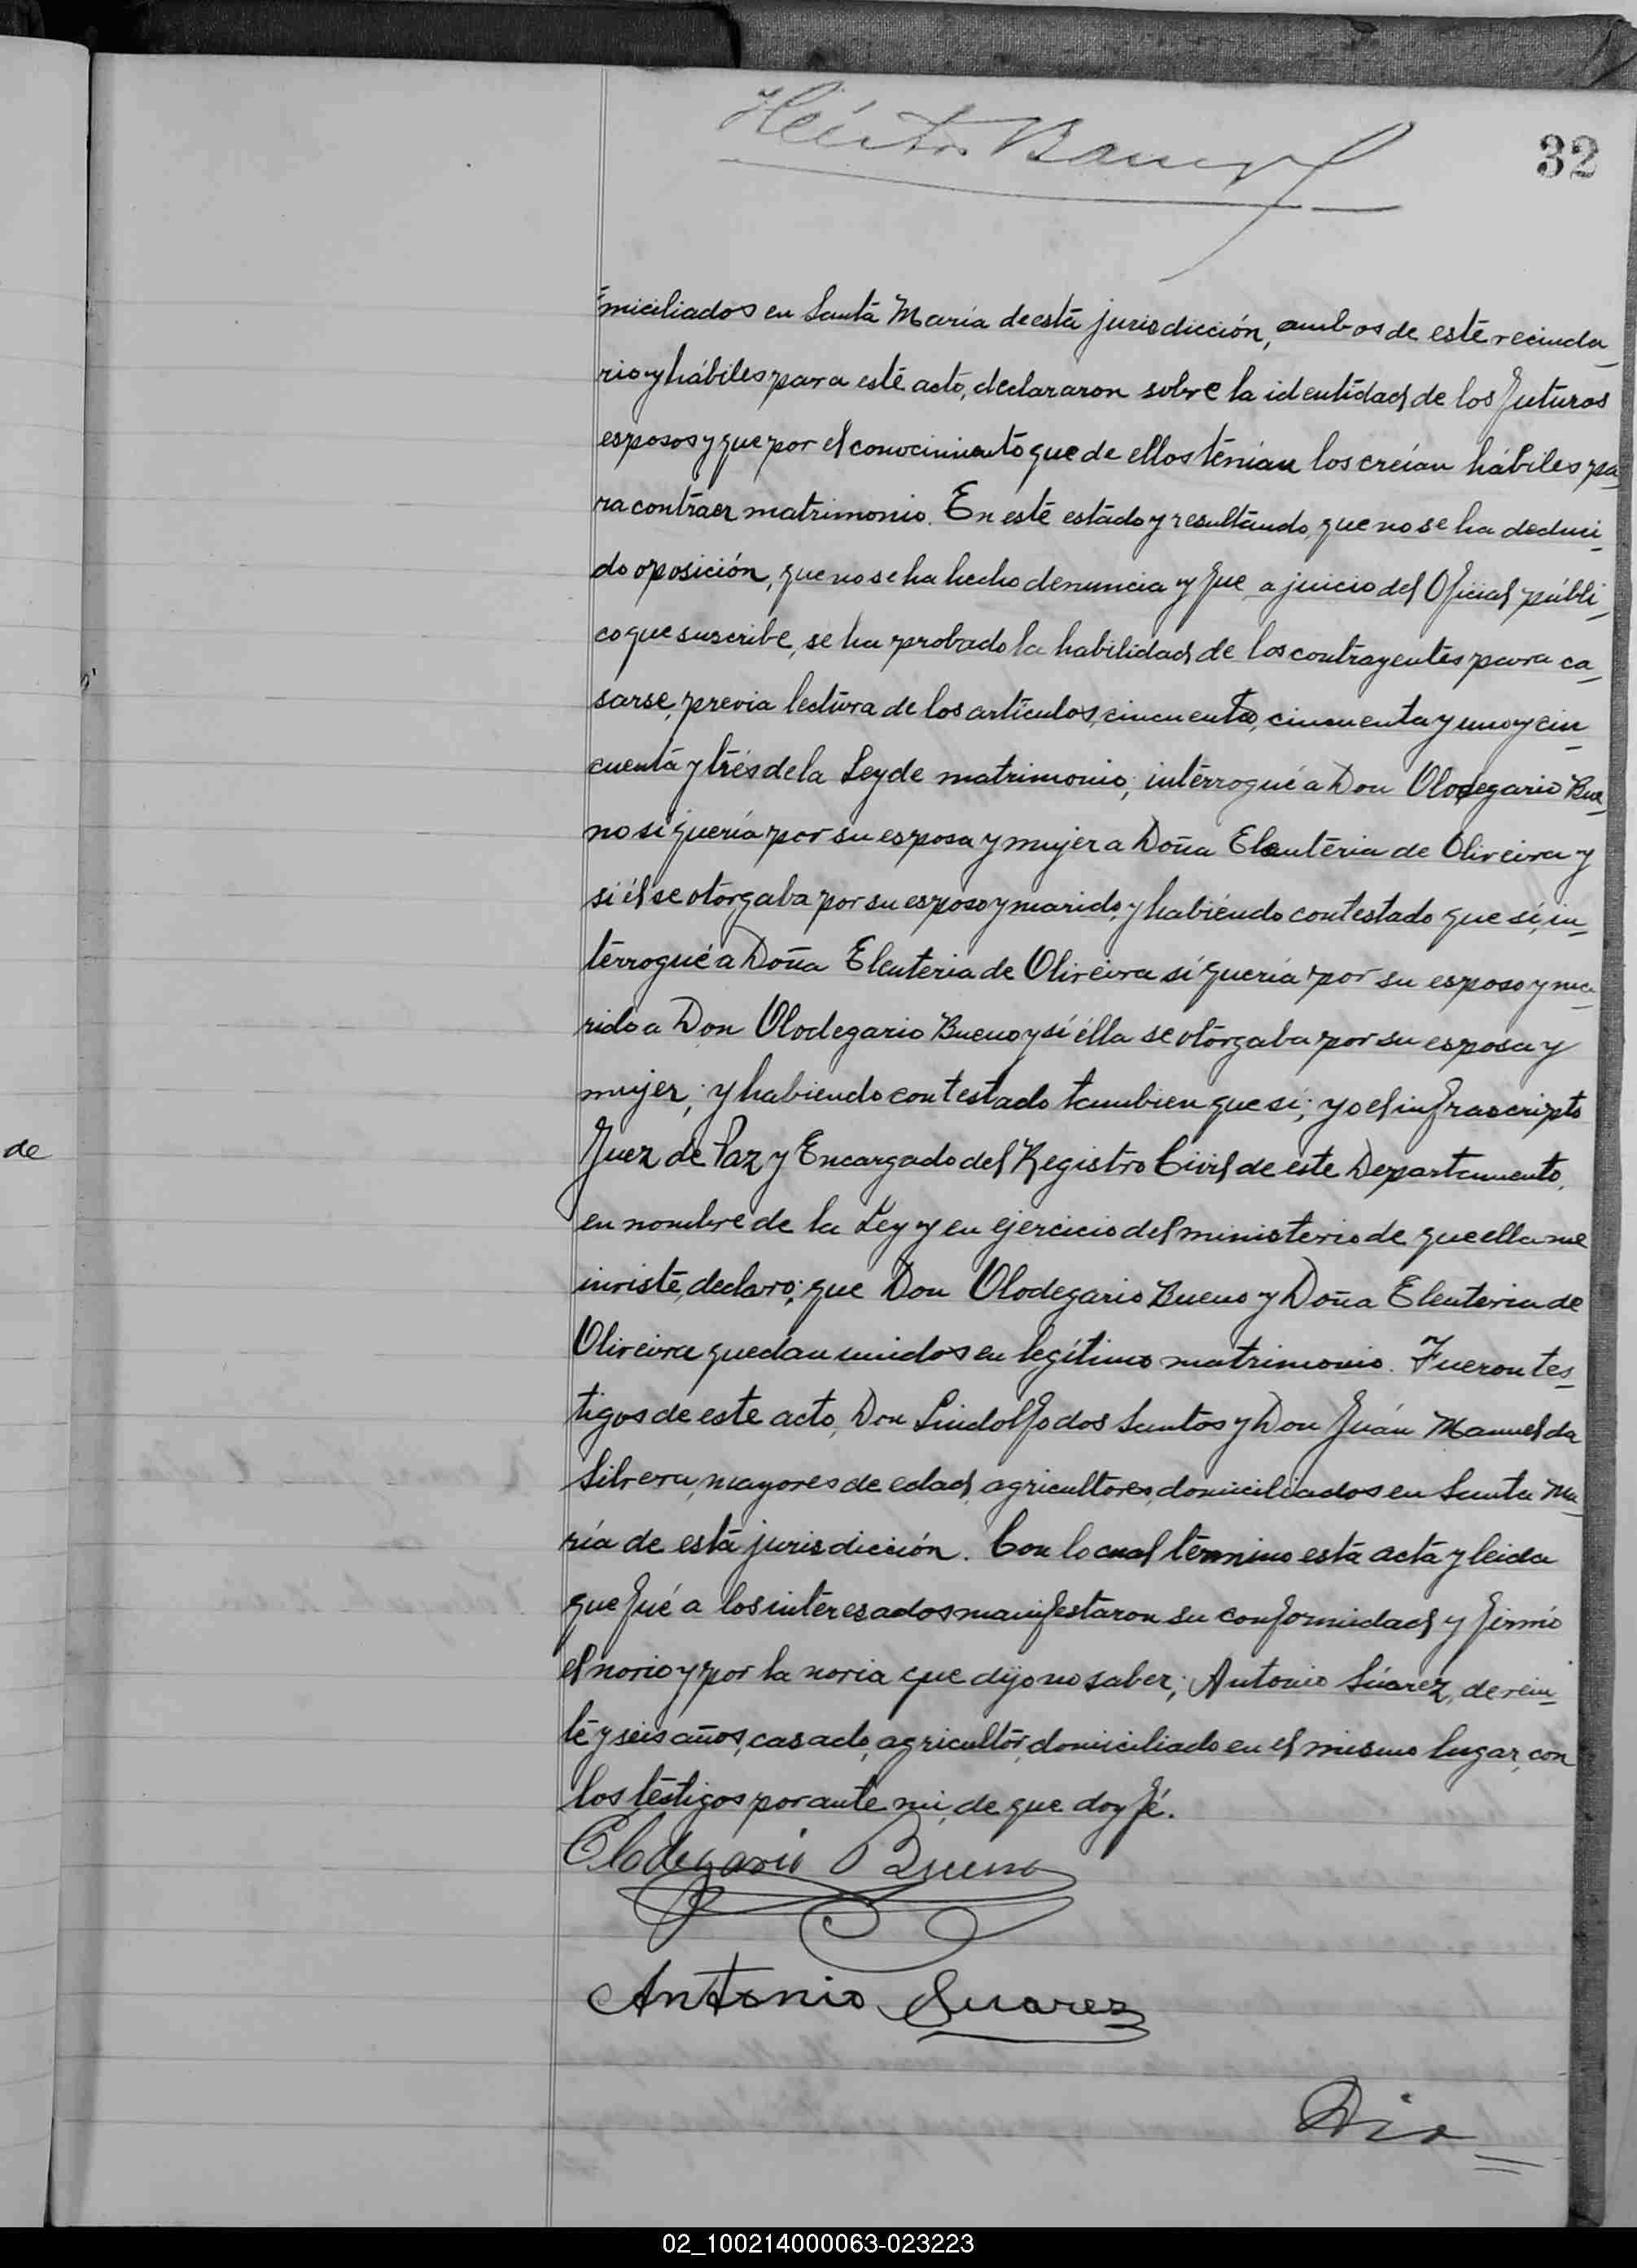 Héctor
32
miciliados en Santa María de esta jurisdicción, ambos de este vecinda_
rio y hábiles para este acto, declararon sobre la identidad de los futuros
esposos y que por el conocimiento que de ellos tenían los creían hábiles pa_
ra contraer matrimonio. En este estado y resultando, que no se ha deduci_
do oposición, que no se ha hecho denuncia y que a juicio del Oficial públi_
co que suscribe, se ha probado la habilidad de los contrayentes para ca_
sarse, previa lectura de los artículos, cincuenta, cincuenta y uno y cin_
cuenta y trés de la Ley de matrimonio; interrogué a Don Olodegario Bue_
no si quería por su esposa y mujer a Doña Eleuteria de Oliveira y
si él se otorgaba por su esposo y marido, y habiendo contestado que sí, in_
terrogué a Doña Eleuteria de Oliveira si quería por su esposo y ma_
rido a Don Olodegario Bueno y si élla se otorgaba por su esposa y
mujer; y habiendo contestado tambien que si; yo el infrascripto
Juez de Paz y Encargado del Registro Civil de este Departamento,
de
en nombre de la Ley y en ejercicio del ministerio de que ella me
inviste, declaro; que Don Olodegario Bueno y Doña Eleuteria de
Oliveira quedan unidos en legítimo matrimonio. Fueron tes_
tigos de este acto, Don Lindolfo dos Santos y Don Juán Manuel da
Silvera, mayores de edad, agricultores, domiciliados en Santa Ma_
ría de esta jurisdicción. Con lo cual termino esta acta y leida
que fué a los interesados manifestaron su conformidad y firmó
el novio y por la novia que dijo no saber; Antonio Súarez, de vein_
te y seis años, casado, agricultor, domiciliado en el mismo lugar, con
los testigos por ante mi, de que doy fé.
Olodegario Bueno
Antonio Suarez